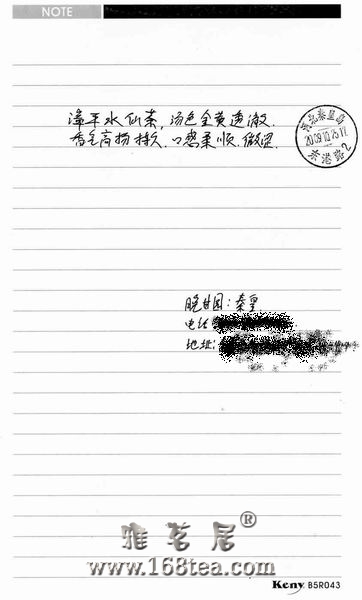 NOTE
漳平水仙茶,汤色金黄透澈.
香气高扬持久.口感柔顺.微涩.
河北秦皇岛
东港路2
晚甘园:秦皇
电话:
地址:
雅茗居®
www.168tea.com
Keny B5R043